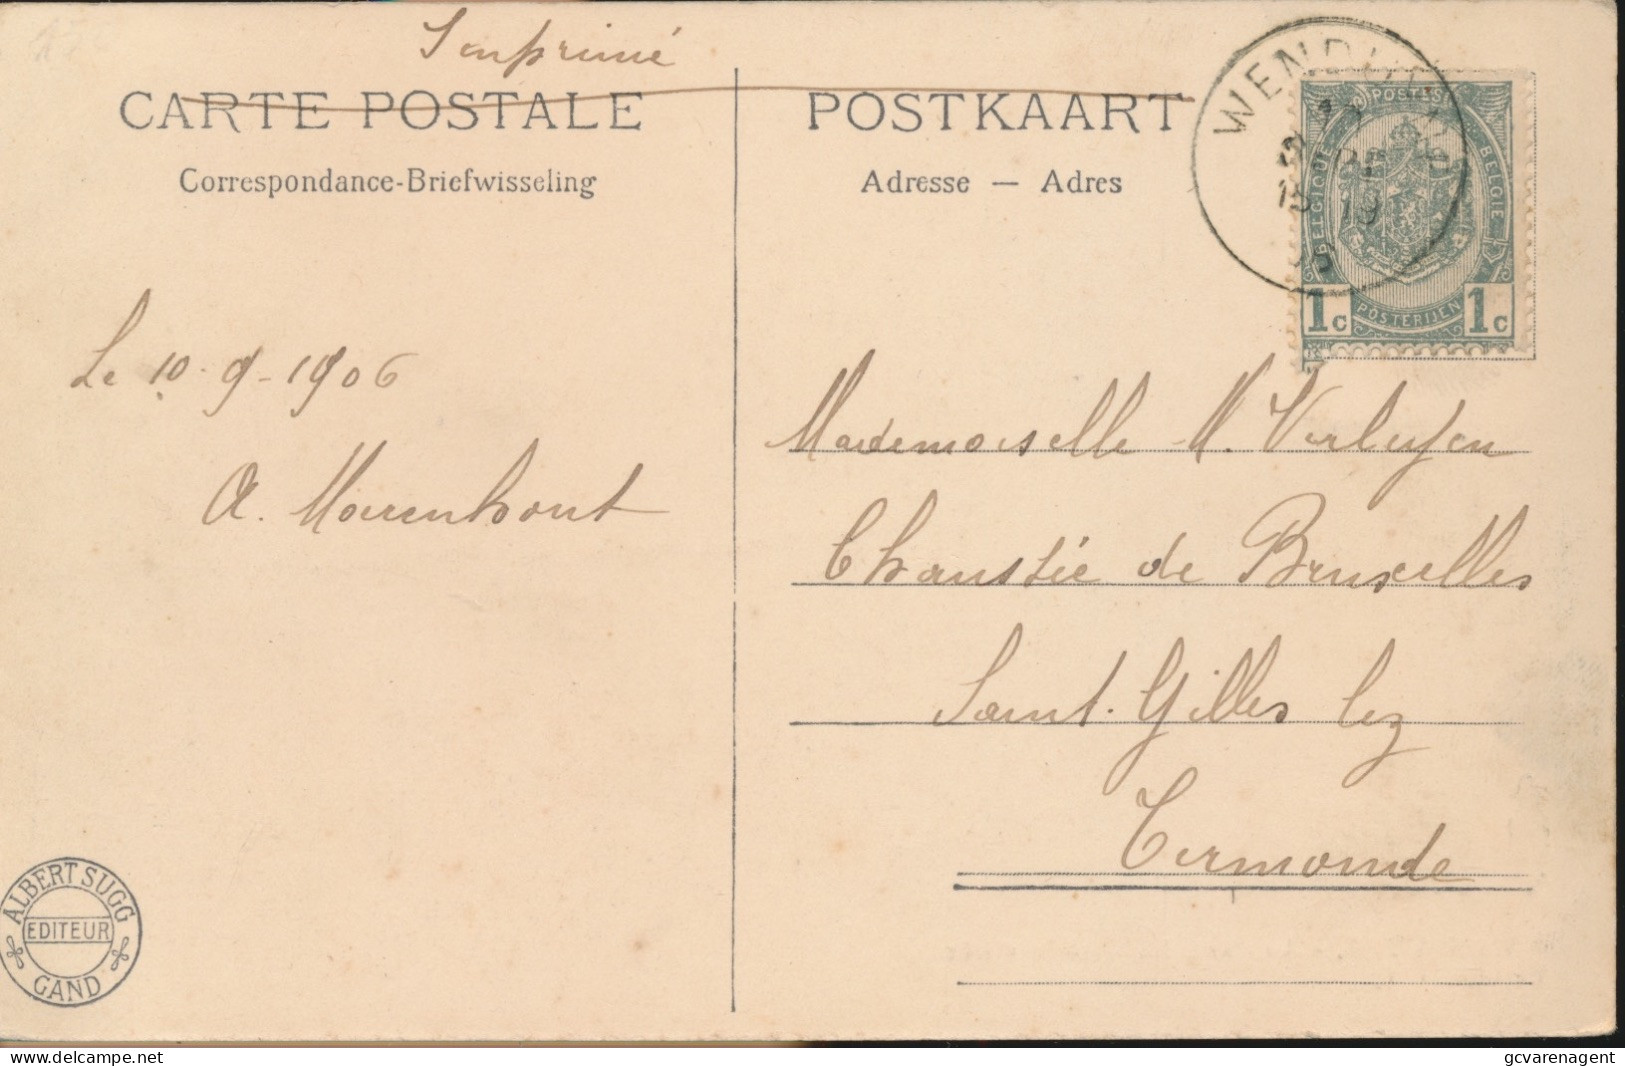 Imprimé
CARTE POSTALE
Correspondance-Briefwisseling
Le 10-9-1906
A. Moerenhout
ALBERT SUGG
EDITEUR
GAND
POSTKAART
Adresse — Adres
POSTES
BELGIQUE
BELGIE
POSTERIJEN
1c 1c
Mademoiselle M. Verleysen
Chaussée de Bruxelles
Saint-Gilles lez
Termonde
delcampe.net
gcvarenagent